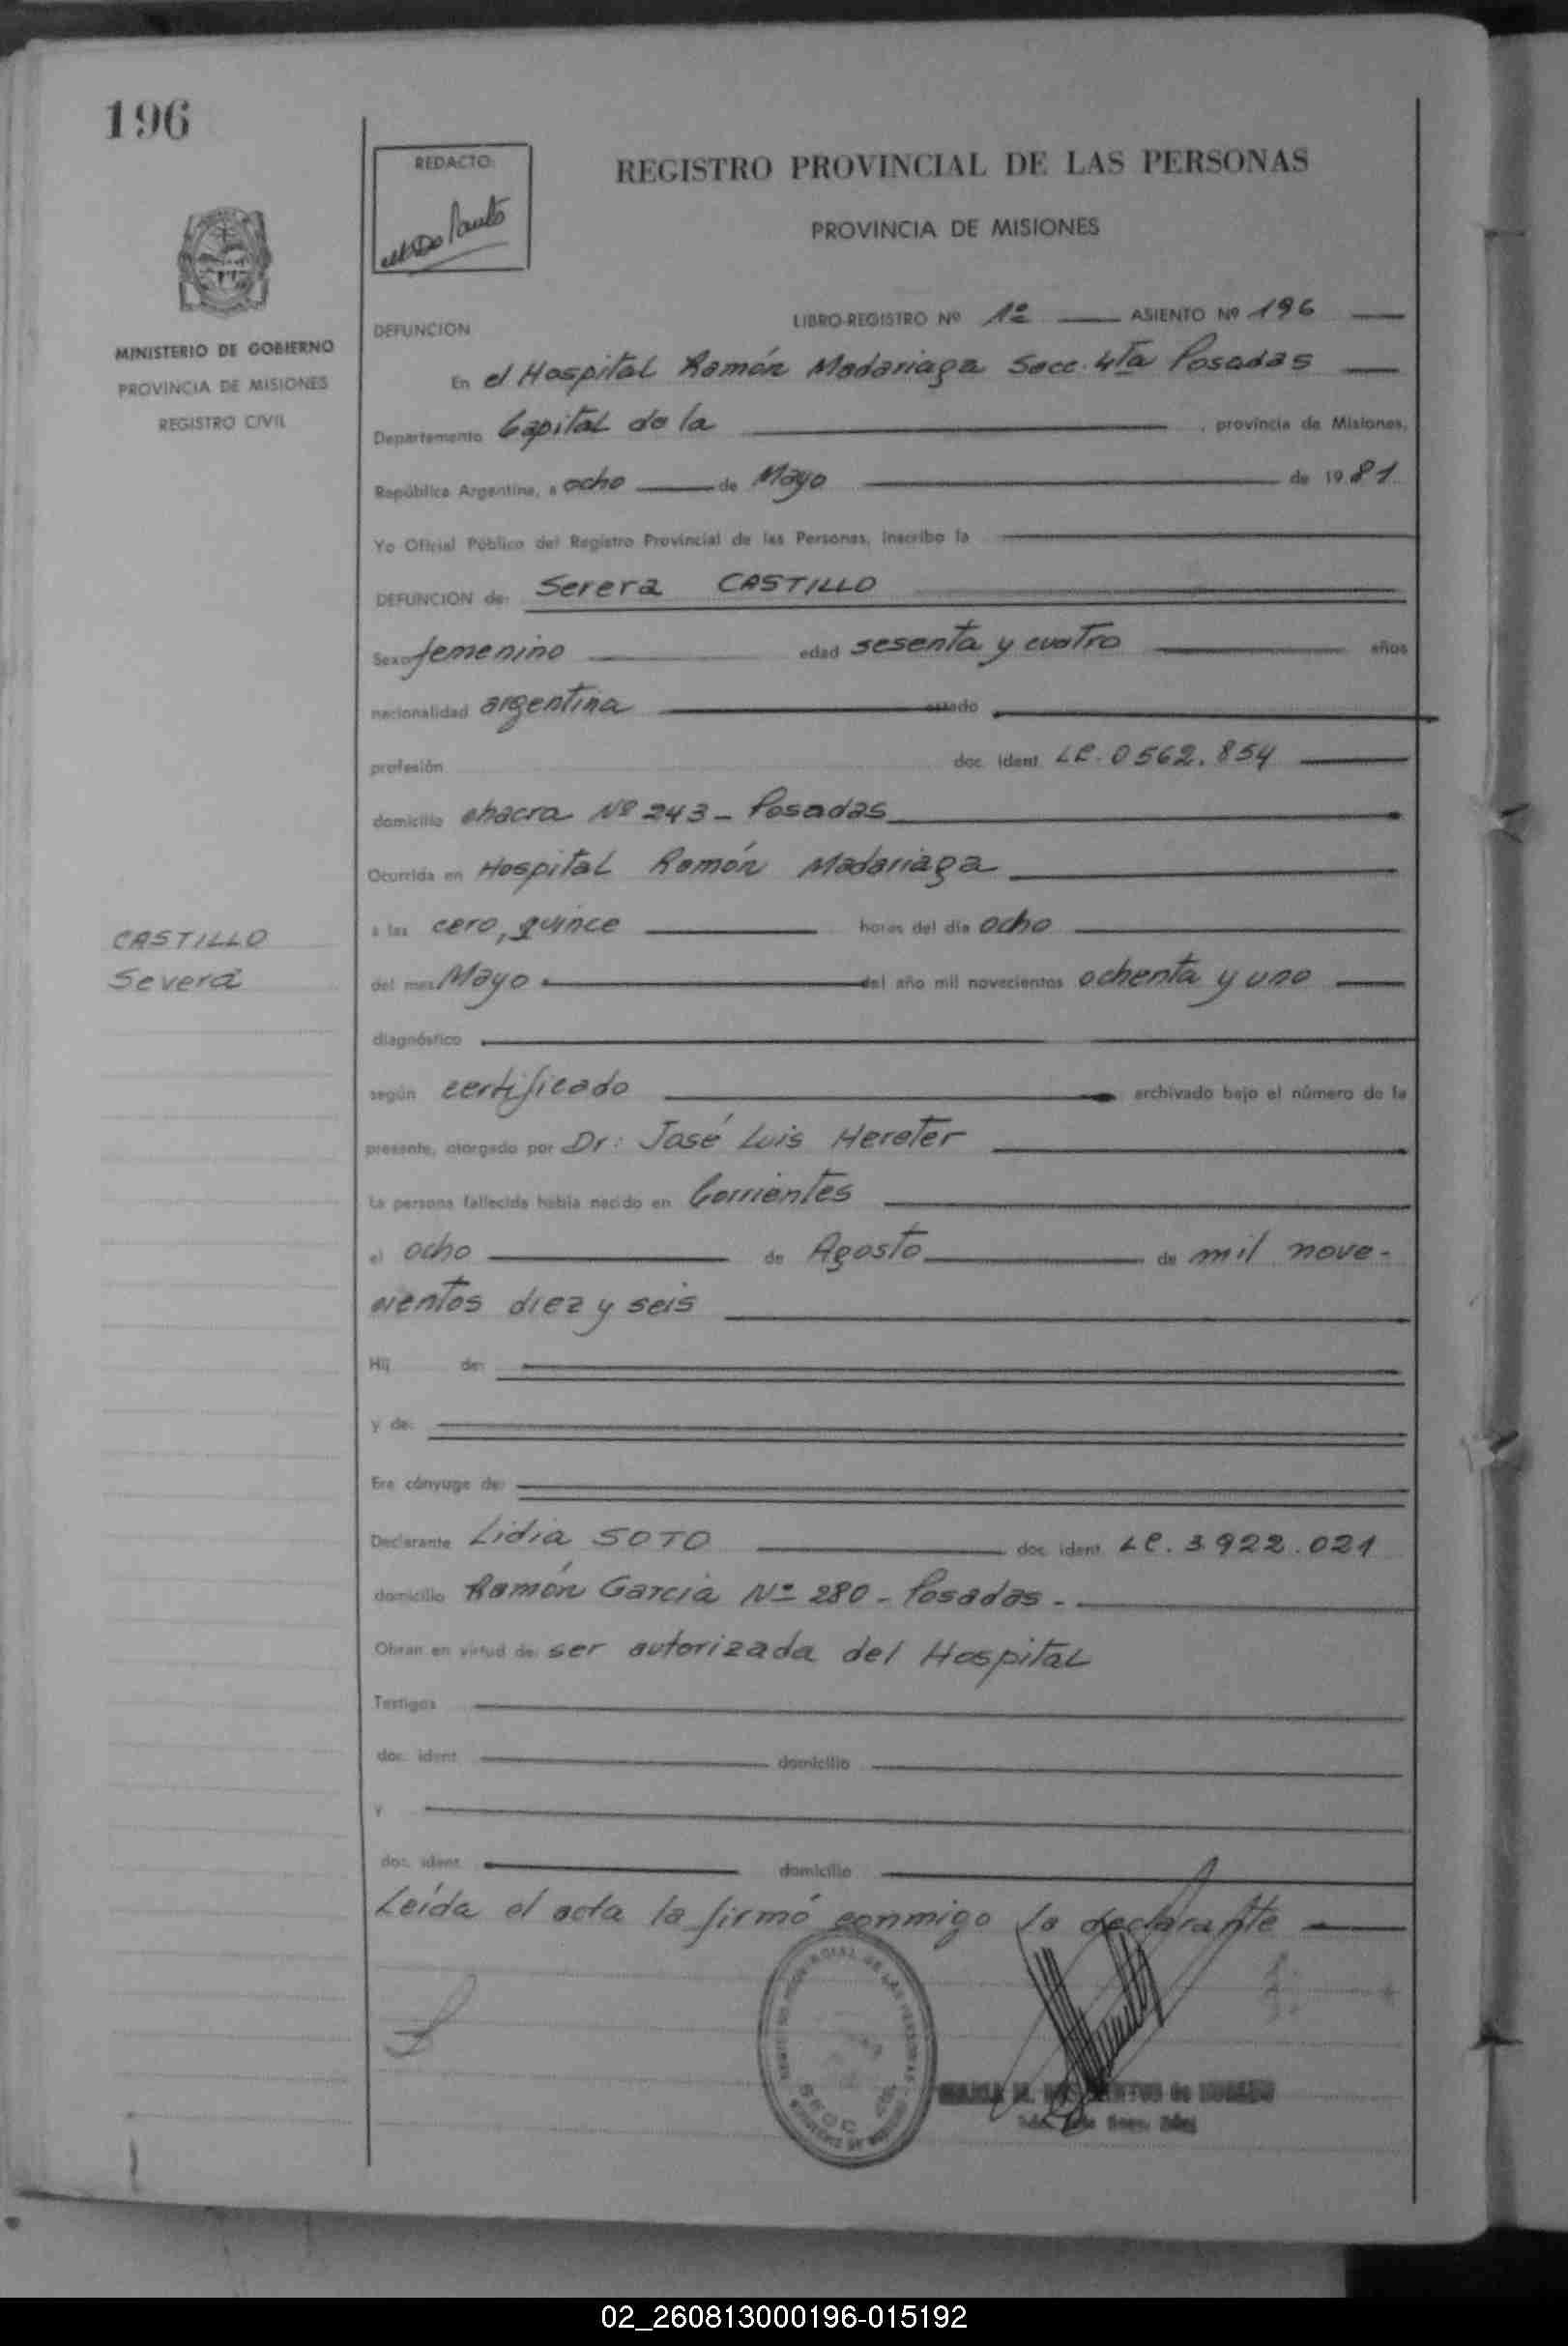 196
REDACTO:
REGISTRO PROVINCIAL DE LAS PERSONAS
PROVINCIA DE MISIONES
MINISTERIO DE GOBIERNO
PROVINCIA DE MISIONES
REGISTRO CIVIL
DEFUNCION
LIBRO-REGISTRO Nº 1º ASIENTO Nº 196
En el Hospital Ramón Madariaga Secc. 4ta Posadas
Departamento Capital de la , provincia de Misiones,
República Argentina, a ocho de Mayo de 1981
Yo Oficial Público del Registro Provincial de las Personas, inscribo la
DEFUNCION de: Serera CASTILLO
Sexo femenino edad sesenta y cuatro años
nacionalidad argentina estado
profesión doc. ident. LC. 0562.854
domicilio chacra Nº 243 - Posadas
Ocurrida en Hospital Ramón Madariaga
a las cero, quince horas del día ocho
CASTILLO
Severa
del mes Mayo del año mil novecientos ochenta y uno
diagnóstico
según certificado archivado bajo el número de la
presente, otorgado por Dr: José Luis Hereter
La persona fallecida había nacido en Corrientes
el ocho de Agosto de mil nove-
cientos diez y seis
Hij de:
y de:
Era cónyuge de:
Declarante Lidia SOTO doc. ident. LC. 3.922.021
domicilio Ramón Garcia Nº 280 - Posadas -
Obran en virtud de: ser autorizada del Hospital
Testigos
doc. ident. domicilio
y
doc. ident. domicilio
Leída el acta la firmó conmigo la declarante
02_260813000196-015192